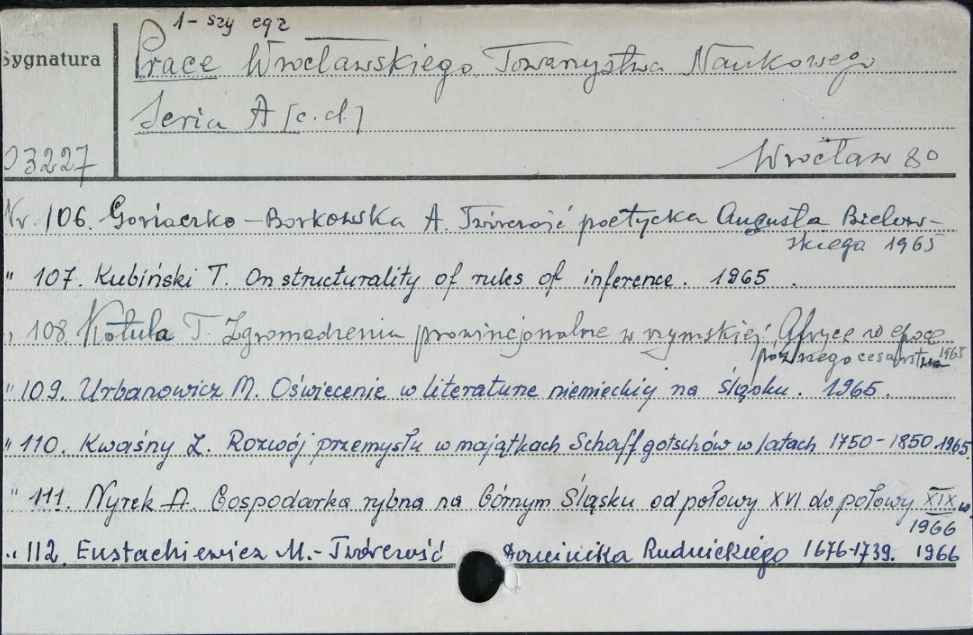 1-szy egz
Sygnatura
Prace Wrocławskiego Towarzystwa Naukowego
Seria A [c.d.]
3227
Wrocław 80
Nr. 106. Goriaczko-Borkowska A. Twórczość poetycka Augusta Bielow-
skiego 1965
" 107. Kubiński T. On structurality of rules of inference. 1965.
" 108 Kotula T. Zgromadzenia prowincjonalne w rzymskiej Afryce w epoce
późnego cesarstwa 1965
" 109. Urbanowicz M. Oświecenie w literaturze niemieckiej na Śląsku. 1965.
" 110. Kwaśny Z. Rozwój przemysłu w majątkach Schaffgotschów w latach 1750-1850. 1965.
" 111. Nyrek A. Gospodarka rybna na Górnym Śląsku od połowy XVI do połowy XIX w.
1966
" 112. Eustachiewicz M.- Twórczość Dominika Rudnickiego 1676-1739. 1966